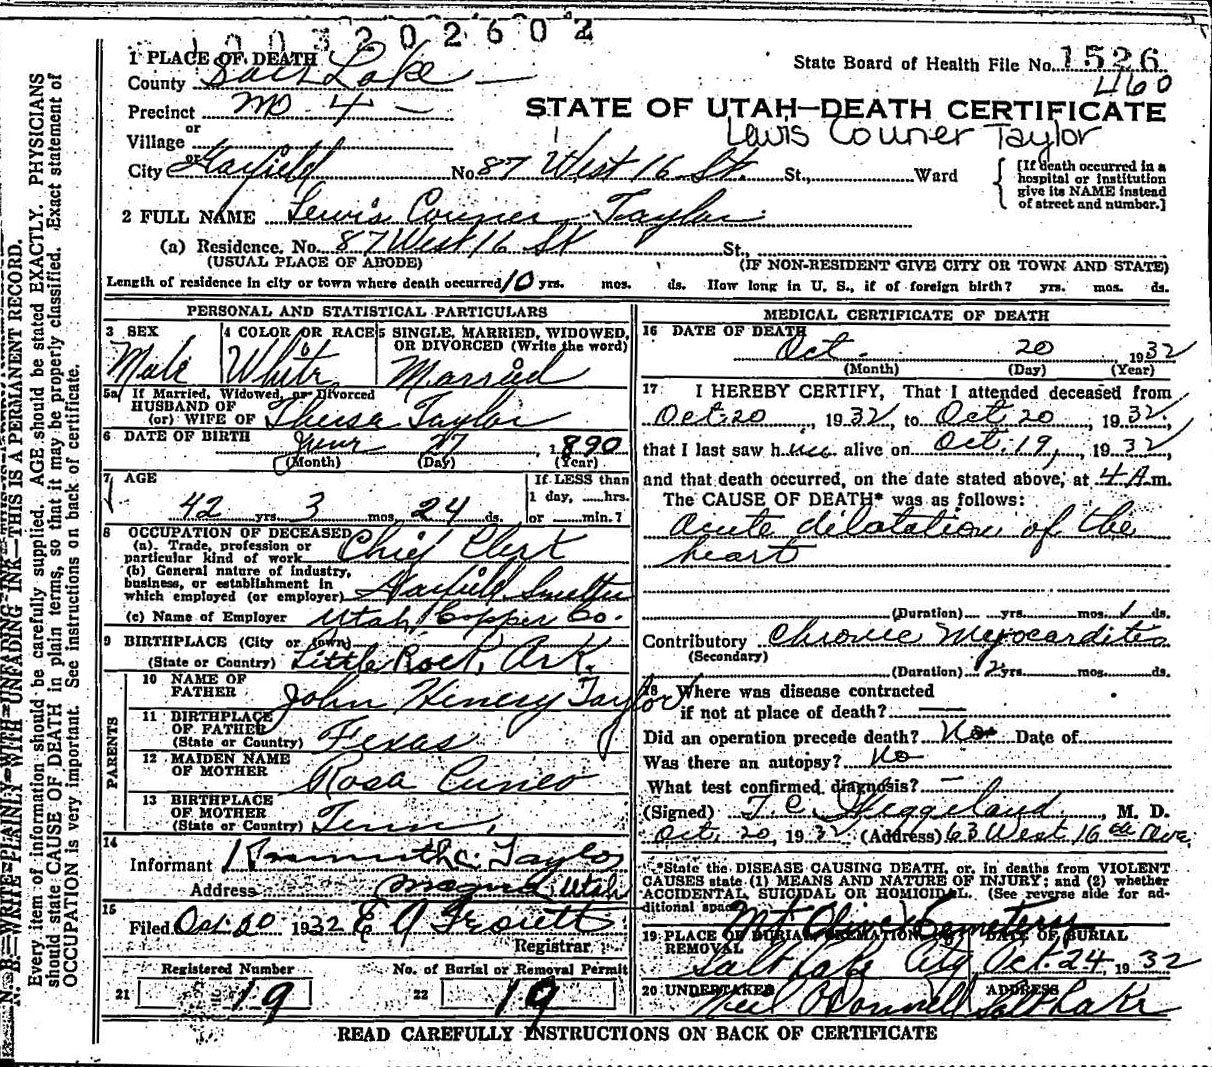 1003202602
1 PLACE OF DEATH
State Board of Health File No. 1526
County Salt Lake
460
Precinct No 4
STATE OF UTAH—DEATH CERTIFICATE
or
Village
Lewis Couner Taylor
or
City Garfield No. 87 West 16 St. St., Ward
[If death occurred in a hospital or institution give its NAME instead of street and number.]
2 FULL NAME Lewis Couner Taylor
(a) Residence, No. 87 West 16 St St.,
(USUAL PLACE OF ABODE) (IF NON-RESIDENT GIVE CITY OR TOWN AND STATE)
Length of residence in city or town where death occurred 10 yrs. mos. ds. How long in U. S., if of foreign birth? yrs. mos. ds.
PERSONAL AND STATISTICAL PARTICULARS
3 SEX
Male
4 COLOR OR RACE
White
5 SINGLE, MARRIED, WIDOWED, OR DIVORCED (Write the word)
Married
5a If Married, Widowed, or Divorced
HUSBAND OF
(or) WIFE OF Theresa Taylor
6 DATE OF BIRTH June 27, 1890
(Month) (Day) (Year)
7 AGE
If LESS than
1 day, ......hrs.
42 yrs. 3 mos. 24 ds. or ......min.?
8 OCCUPATION OF DECEASED
(a) Trade, profession or
particular kind of work Chief Clerk
(b) General nature of industry,
business, or establishment in
which employed (or employer) Garfield Smelter
(c) Name of Employer Utah Copper Co.
9 BIRTHPLACE (City or town)
(State or Country) Little Rock, Ark.
PARENTS
10 NAME OF
FATHER John Henery Taylor
11 BIRTHPLACE
OF FATHER
(State or Country) Texas
12 MAIDEN NAME
OF MOTHER Rosa Cuneo
13 BIRTHPLACE
OF MOTHER
(State or Country) Tenn.
14
Informant Kenneth C. Taylor
Address Magna, Utah
15
Filed Oct. 20 1932
Registrar.
Registered Number
21 19
No. of Burial or Removal Permit
22 19
MEDICAL CERTIFICATE OF DEATH
16 DATE OF DEATH
Oct. 20 1932
(Month) (Day) (Year)
17 I HEREBY CERTIFY, That I attended deceased from
Oct. 20, 1932, to Oct. 20, 1932,
that I last saw him alive on Oct. 19, 1932
and that death occurred, on the date stated above, at 4 A.m.
The CAUSE OF DEATH* was as follows:
Acute dilatation of the
heart
(Duration) yrs. mos. 1 ds.
Contributory Chronic Myocarditis
(Secondary)
(Duration) 2 yrs. mos. ds.
18 Where was disease contracted
if not at place of death?
Did an operation precede death? No Date of
Was there an autopsy? No
What test confirmed diagnosis?
(Signed) T. C. Heggeland, M. D.
Oct. 20, 1932 (Address) 63 West 16th Ave
*State the DISEASE CAUSING DEATH, or, in deaths from VIOLENT
CAUSES state (1) MEANS AND NATURE OF INJURY; and (2) whether
ACCIDENTAL, SUICIDAL OR HOMICIDAL. (See reverse side for ad-
ditional space.)
Mt Olivet Cemetery
19 PLACE OF BURIAL, CREMATION, OR REMOVAL
Salt Lake City
DATE OF BURIAL
Oct. 24, 1932
20 UNDERTAKER
Neil O'Donnell
ADDRESS
Salt Lake
READ CAREFULLY INSTRUCTIONS ON BACK OF CERTIFICATE
N. B.—WRITE PLAINLY WITH UNFADING INK—THIS IS A PERMANENT RECORD.
Every item of information should be carefully supplied. AGE should be stated EXACTLY. PHYSICIANS
should state CAUSE OF DEATH in plain terms, so that it may be properly classified. Exact statement of
OCCUPATION is very important. See instructions on back of certificate.